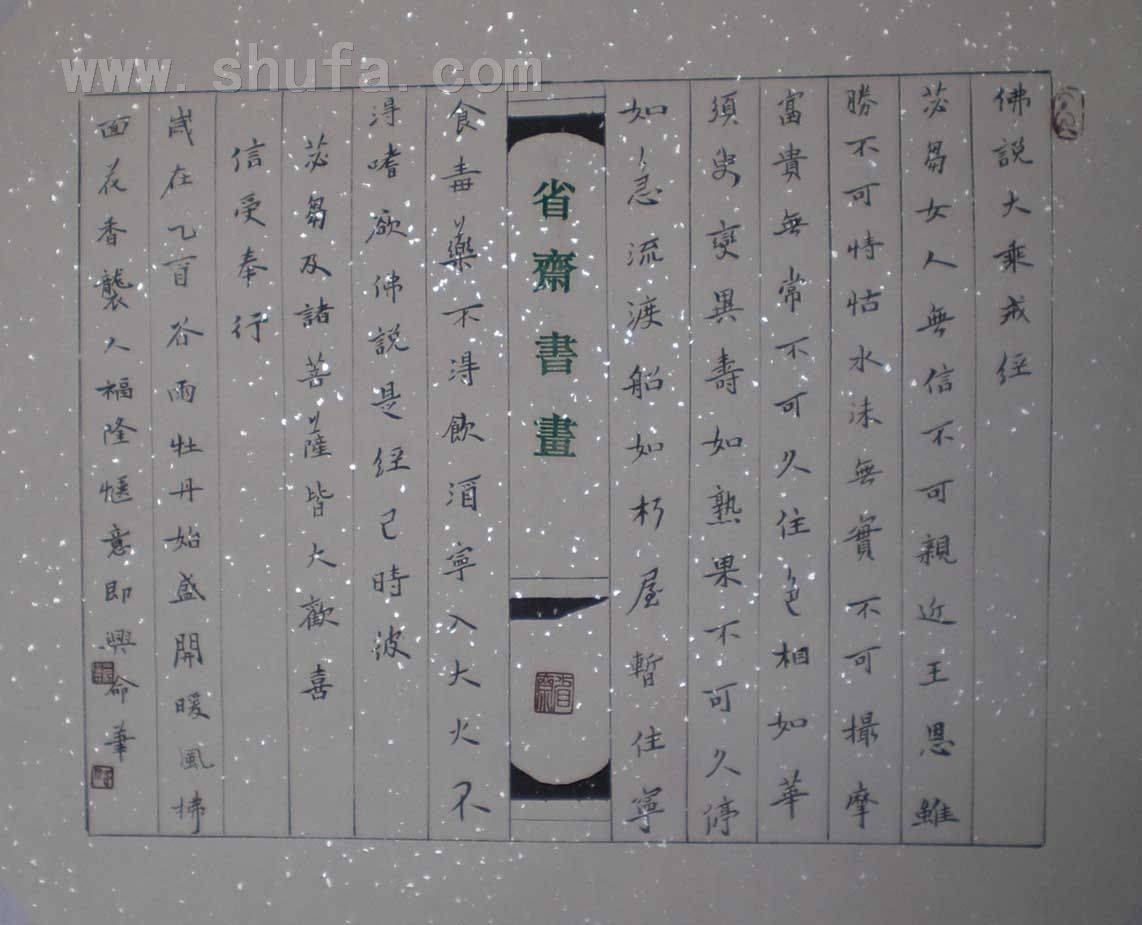 www.shufa.com
佛說大乘戒經
苾芻女人無信不可親近王恩雖
勝不可恃怙水沫無實不可撮摩
富貴無常不可久住色相如華
須臾變異壽如熟果不可久停
如彼急流渡船如朽屋暫住寧
省齋書畫
省齋
食毒藥不得飲酒寧入大火不
得嗜欲佛說是經已時彼
苾芻及諸菩薩皆大歡喜
信受奉行
歲在乙酉谷雨牡丹始盛開暖風拂
面花香襲人福隆愜意即興命筆